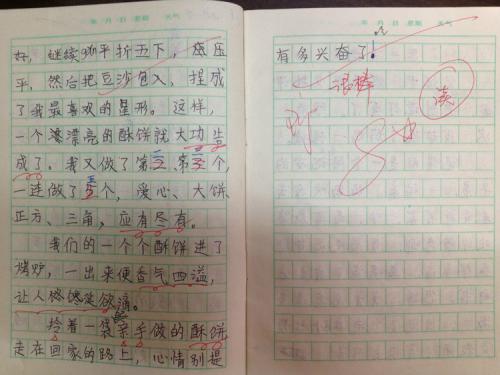 年 月 日 星期 天气
好，继续如平折五下，底压
平，然后把豆沙包入，捏成
了我最喜欢的星形。这样，
一个漂亮的酥饼就大功告
成了。我又做了第二、第三个，
一连做了五个，爱心、大饼、
正方、三角，应有尽有。
我们的一个个酥饼进了
烤炉，一出来便香气四溢，
让人馋涎欲滴。
拾着一袋亲手做的酥饼，
走在回家的路上，心情别提
年 月 日 星期 天气
有多兴奋了！
很棒